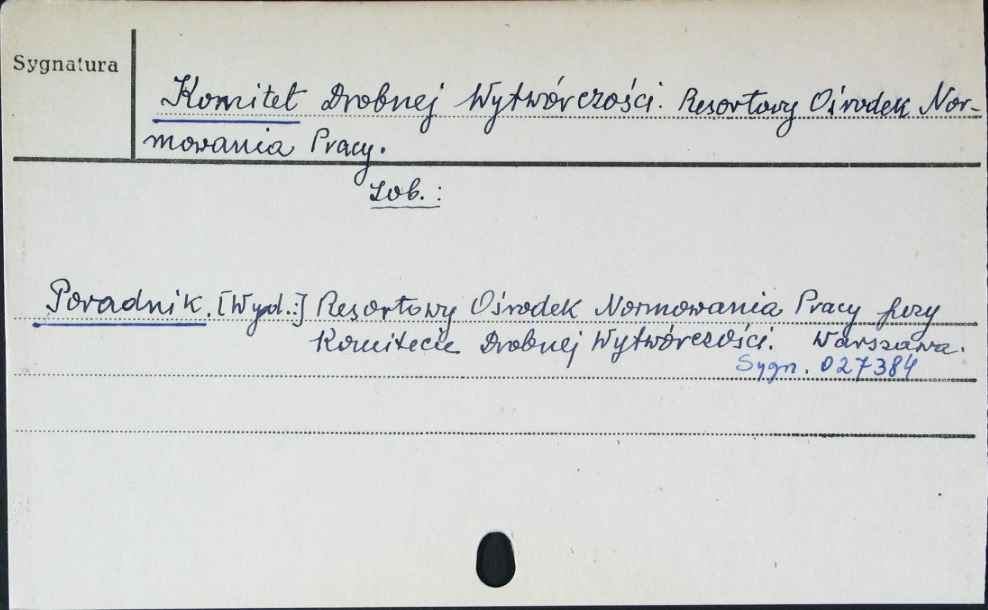 Sygnatura
Komitet Drobnej Wytwórczości. Resortowy Ośrodek Nor-
mowania Pracy.
Zob.:
Poradnik. [Wyd.:] Resortowy Ośrodek Normowania Pracy przy
Komitecie Drobnej Wytwórczości. Warszawa.
Sygn. 027384